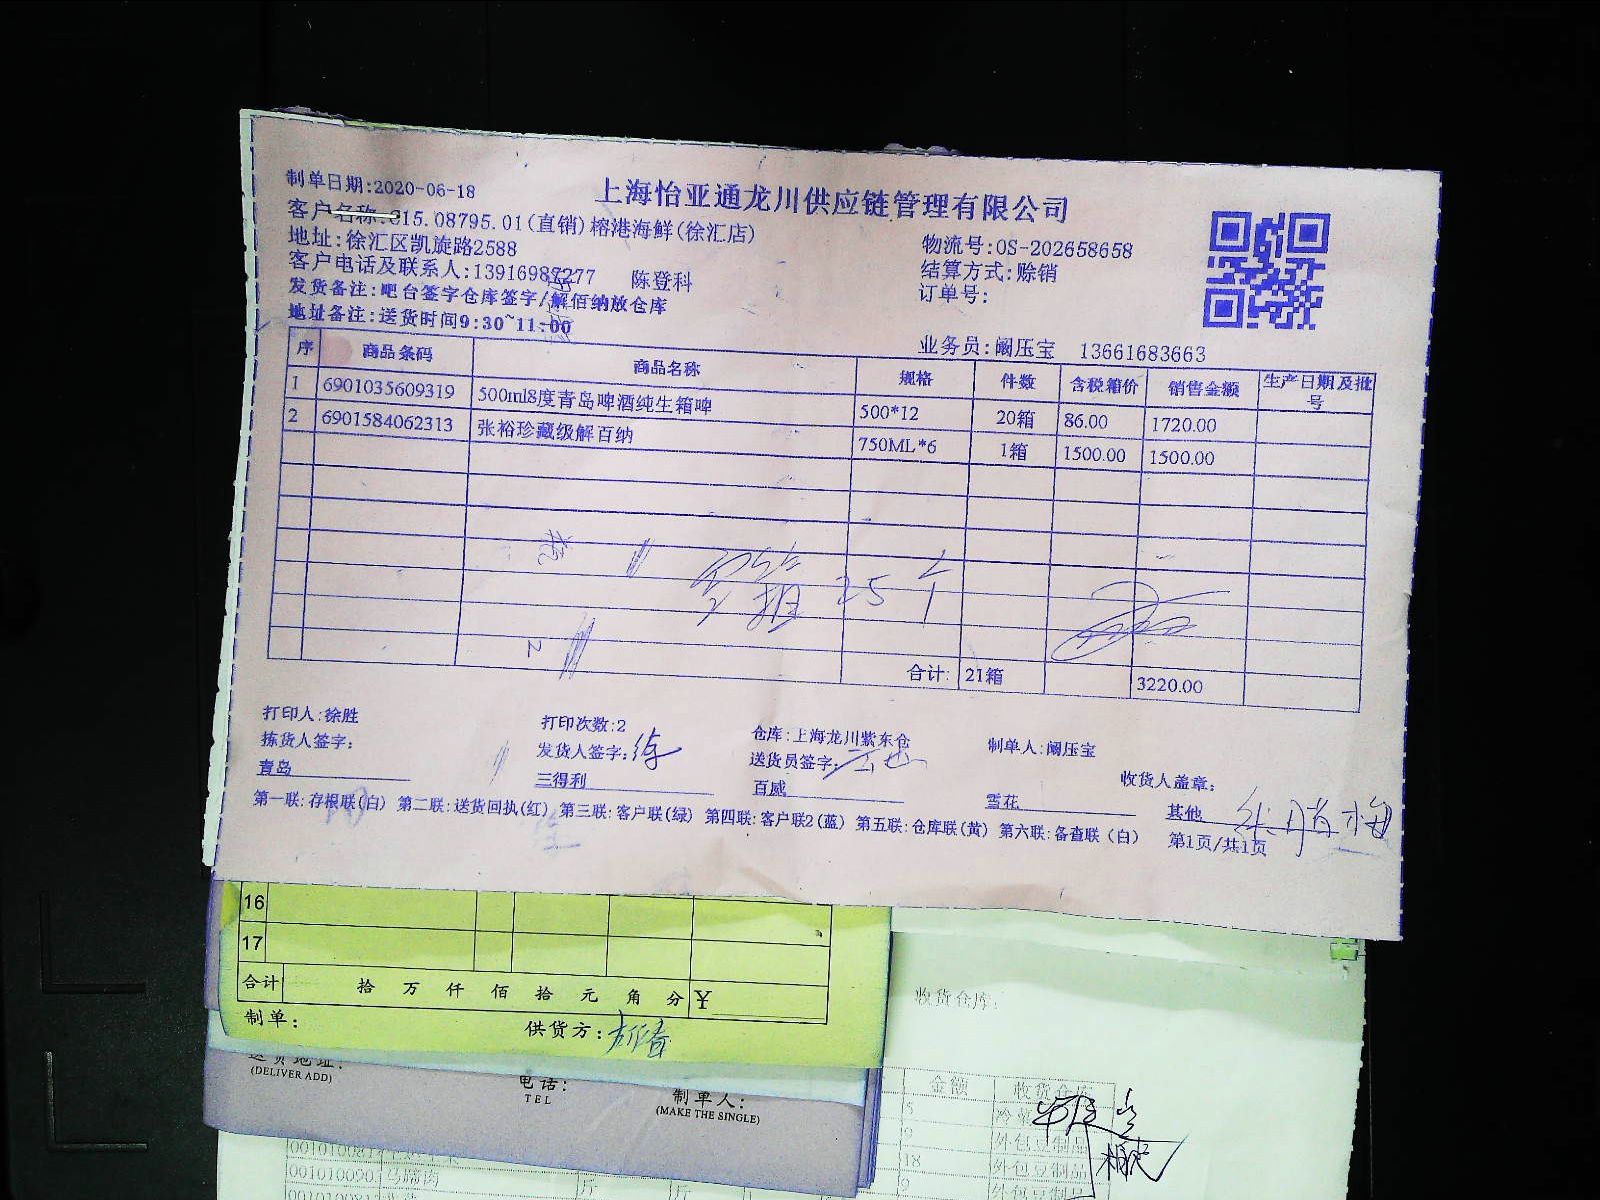 上海怡亚通龙川供应链管理有限公司
制单日期:2020-06-18
客户名称:315.08795.01(直销)榕港海鲜(徐汇店)
地址:徐汇区凯旋路2588
物流号:OS-202658658
客户电话及联系人:13916987277 陈登科
结算方式:赊销
发货备注:吧台签字仓库签字/解佰纳放仓库
订单号:
地址备注:送货时间9:30~11:00
业务员:阚压宝 13661683663
序 商品条码 商品名称 规格 件数 含税箱价 销售金额 生产日期及批号
1 6901035609319 500ml8度青岛啤酒纯生箱啤 500*12 20箱 86.00 1720.00
2 6901584062313 张裕珍藏级解百纳 750ML*6 1箱 1500.00 1500.00
空箱 25个
合计: 21箱 3220.00
打印人:徐胜 打印次数:2 仓库:上海龙川紫东仓 制单人:阚压宝
拣货人签字: 发货人签字: 送货员签字: 收货人盖章:
青岛 三得利 百威 雪花 其他
第一联:存根联(白) 第二联:送货回执(红) 第三联:客户联(绿) 第四联:客户联2(蓝) 第五联:仓库联(黄) 第六联:备查联(白) 第1页/共1页
16
17
合计 拾 万 仟 佰 拾 元 角 分 ¥
制单: 供货方:
收货仓库:
送货地址:
(DELIVER ADD)
电话:
TEL
制单人:
(MAKE THE SINGLE)
金额 收货仓库
5
9 外包豆制品
18 外包豆制品
9 外包豆制品
001010090 马蹄肉 斤 斤